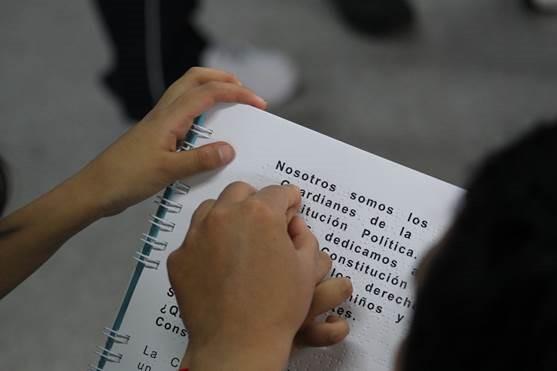 Nosotros somos los
Guardianes de la
itución Política.
dedicamos a
Constitución
los derech
niños y
es.
¿Q
Cons
La C
un